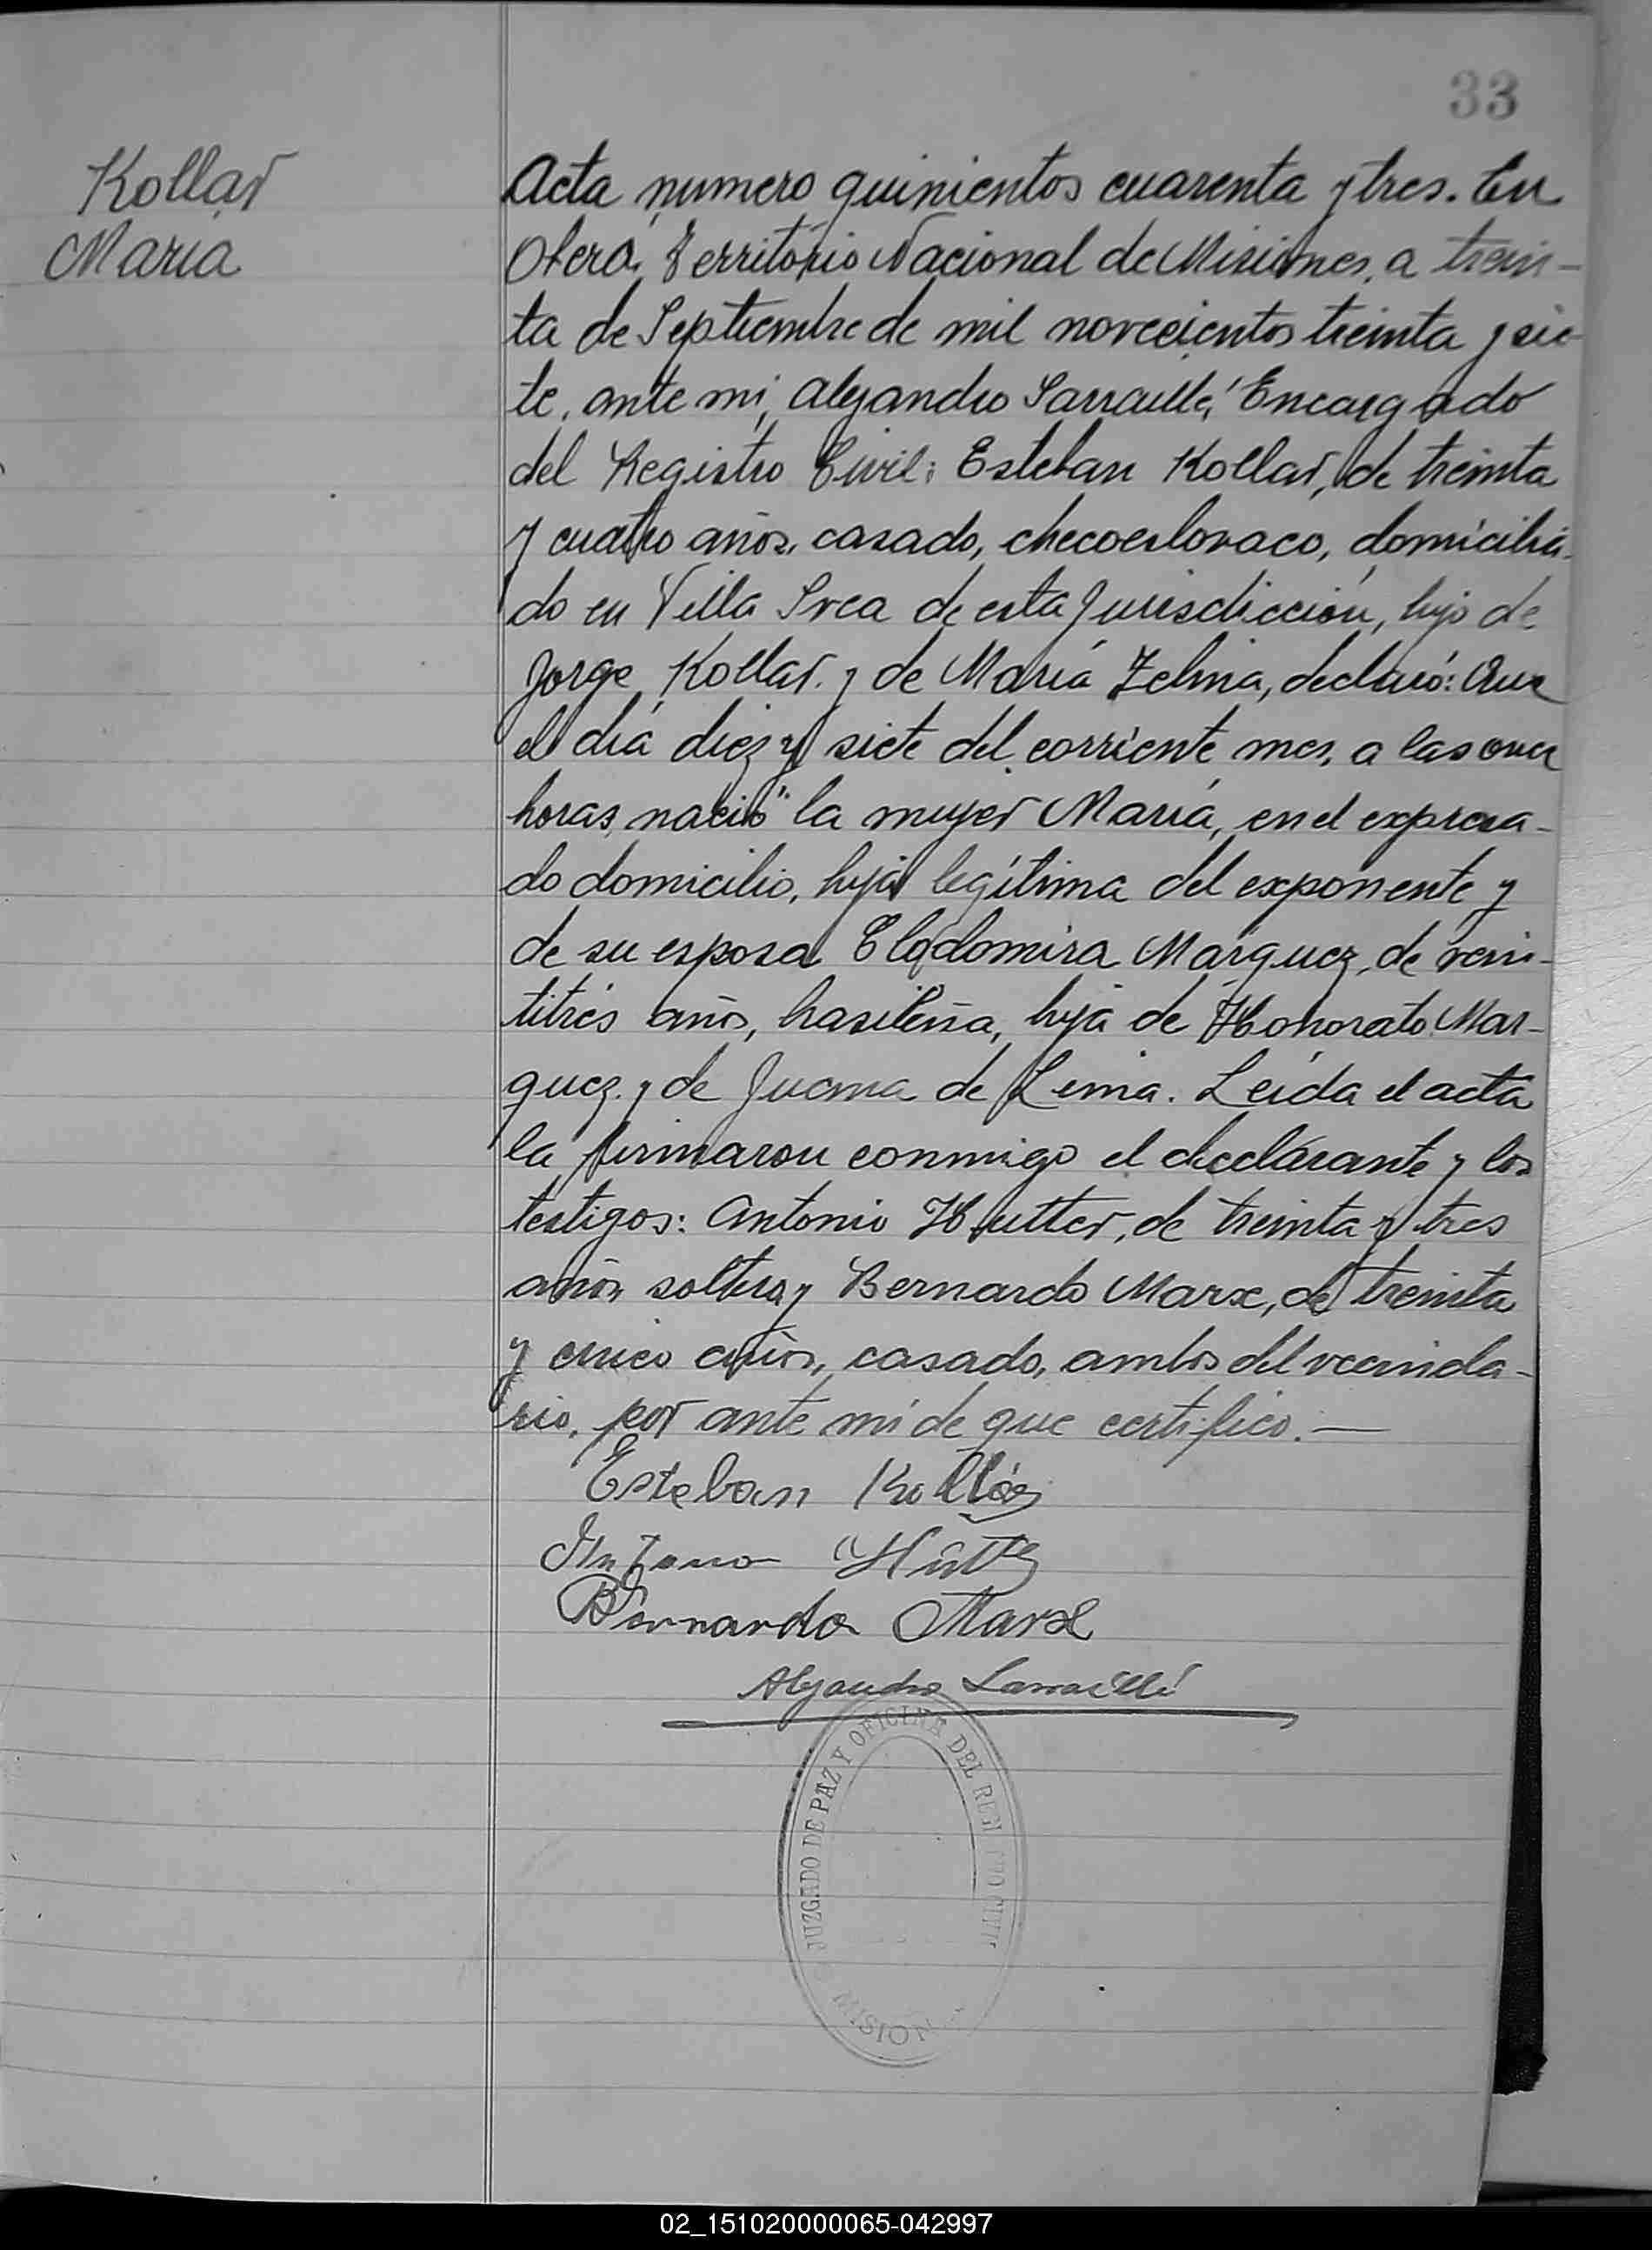 33
Kollar
María
Acta numero quinientos cuarenta y tres. En
Oberá, Territorio Nacional de Misiones, a trein-
ta de Septiembre de mil novecientos treinta y sie-
te, ante mi, Alejandro Sarraillé, Encargado
del Registro Civil: Esteban Kollar, de treinta
y cuatro años, casado, checoeslovaco, domicilia-
do en Villa Svea de esta Jurisdicción, hijo de
Jorge Kollar y de María Zelina, declaró: Que
el día diez y siete del corriente mes, a las once
horas, nació la mujer María, en el expresa-
do domicilio, hija legítima del exponente y
de su esposa Clodomira Márquez, de vein-
titrés años, brasileña, hija de Honorato Mar-
quez y de Juana de Lima. Leída el acta
la firmaron conmigo el declarante y los
testigos: Antonio Hutter, de treinta y tres
años, soltero y Bernardo Marx, de treinta
y cinco años, casado, ambos del vecinda-
rio, por ante mí de que certifico.—
Esteban Kollár
Antonio
Bernardo Marx
Alejandro Sarraillé
JUZGADO DE PAZ Y OFICINA DEL REGISTRO CIVIL
MISIONES
02_151020000065-042997